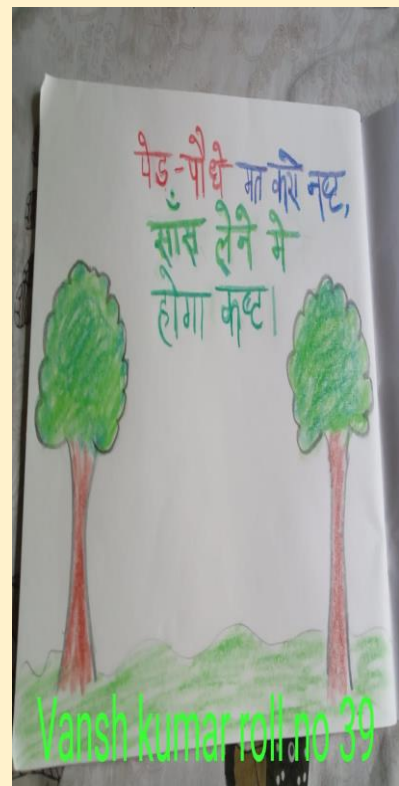 पेड़-पौधे मत करो नष्ट,
साँस लेने मे
होगा कष्ट।
Vansh kumar roll no 39